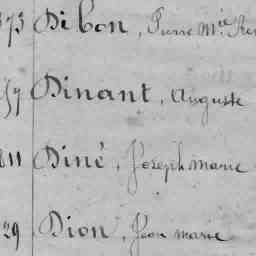 373 Dibon, Pierre Mie
Dinant, Auguste
211 Diné, Joseph marie
29 Dion, Jean marie